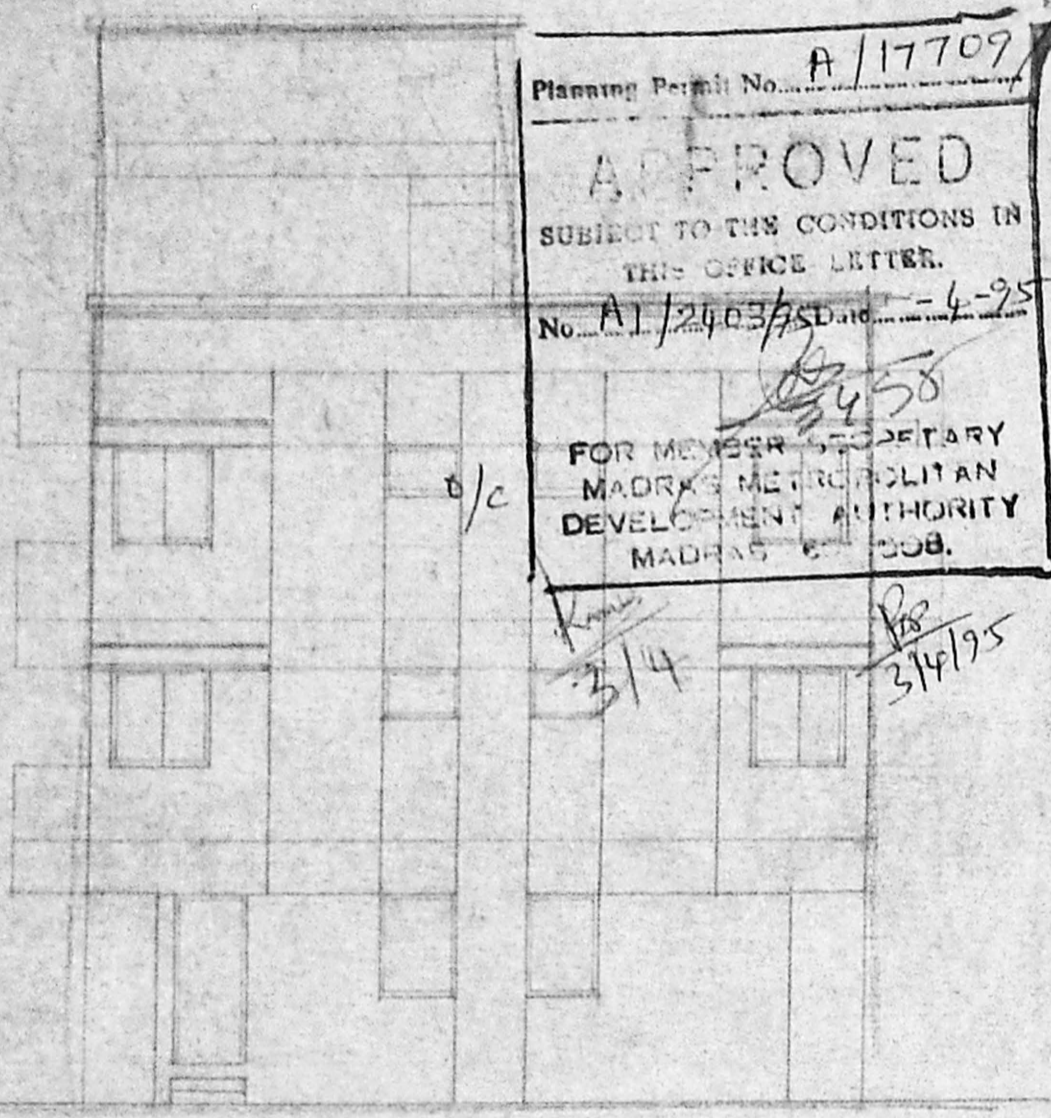 Planning Permit No. A/17709
APPROVED
SUBJECT TO THE CONDITIONS IN
THIS OFFICE LETTER.
No. A1/2403/95 Dated -4-95
FOR MEMBER SECRETARY
MADRAS METROPOLITAN
DEVELOPMENT AUTHORITY
MADRAS 008.
3/4
3/4/95